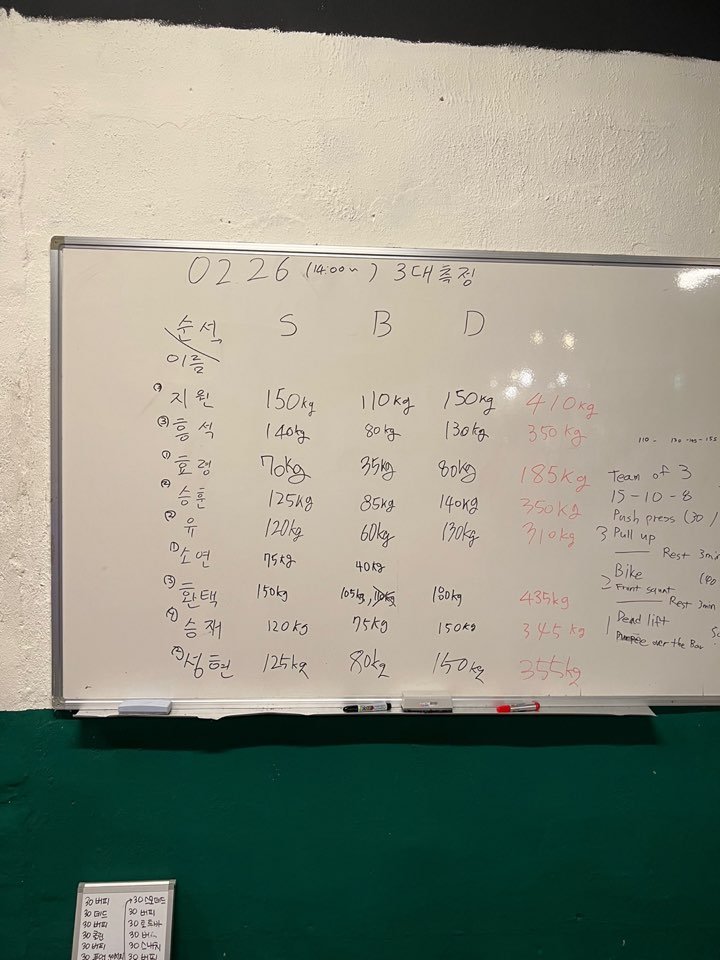 02.26 (14:00~) 3대측정
순석 S B D
이름
지원 150kg 110kg 150kg 410kg
③ 흥석 140kg 80kg 130kg 350kg
① 효령 70kg 35kg 80kg 185kg
② 승훈 125kg 85kg 140kg 350kg
② 유 120kg 60kg 130kg 310kg
① 소연 75kg 40kg
③ 환택 150kg 105kg, 110kg 180kg 435kg
④ 승재 120kg 75kg 150kg 345kg
성현 125kg 80kg 150kg 355kg
Team of 3
15-10-8
Push press (30 /
3 Pull up
Rest 3min
Bike
2 Front squat
Rest 3min
1 Dead lift
over the Bar
30 버피
30 데드
30 버피
30 클린
30 버피
30
30 버피
30 스내치
30 버피